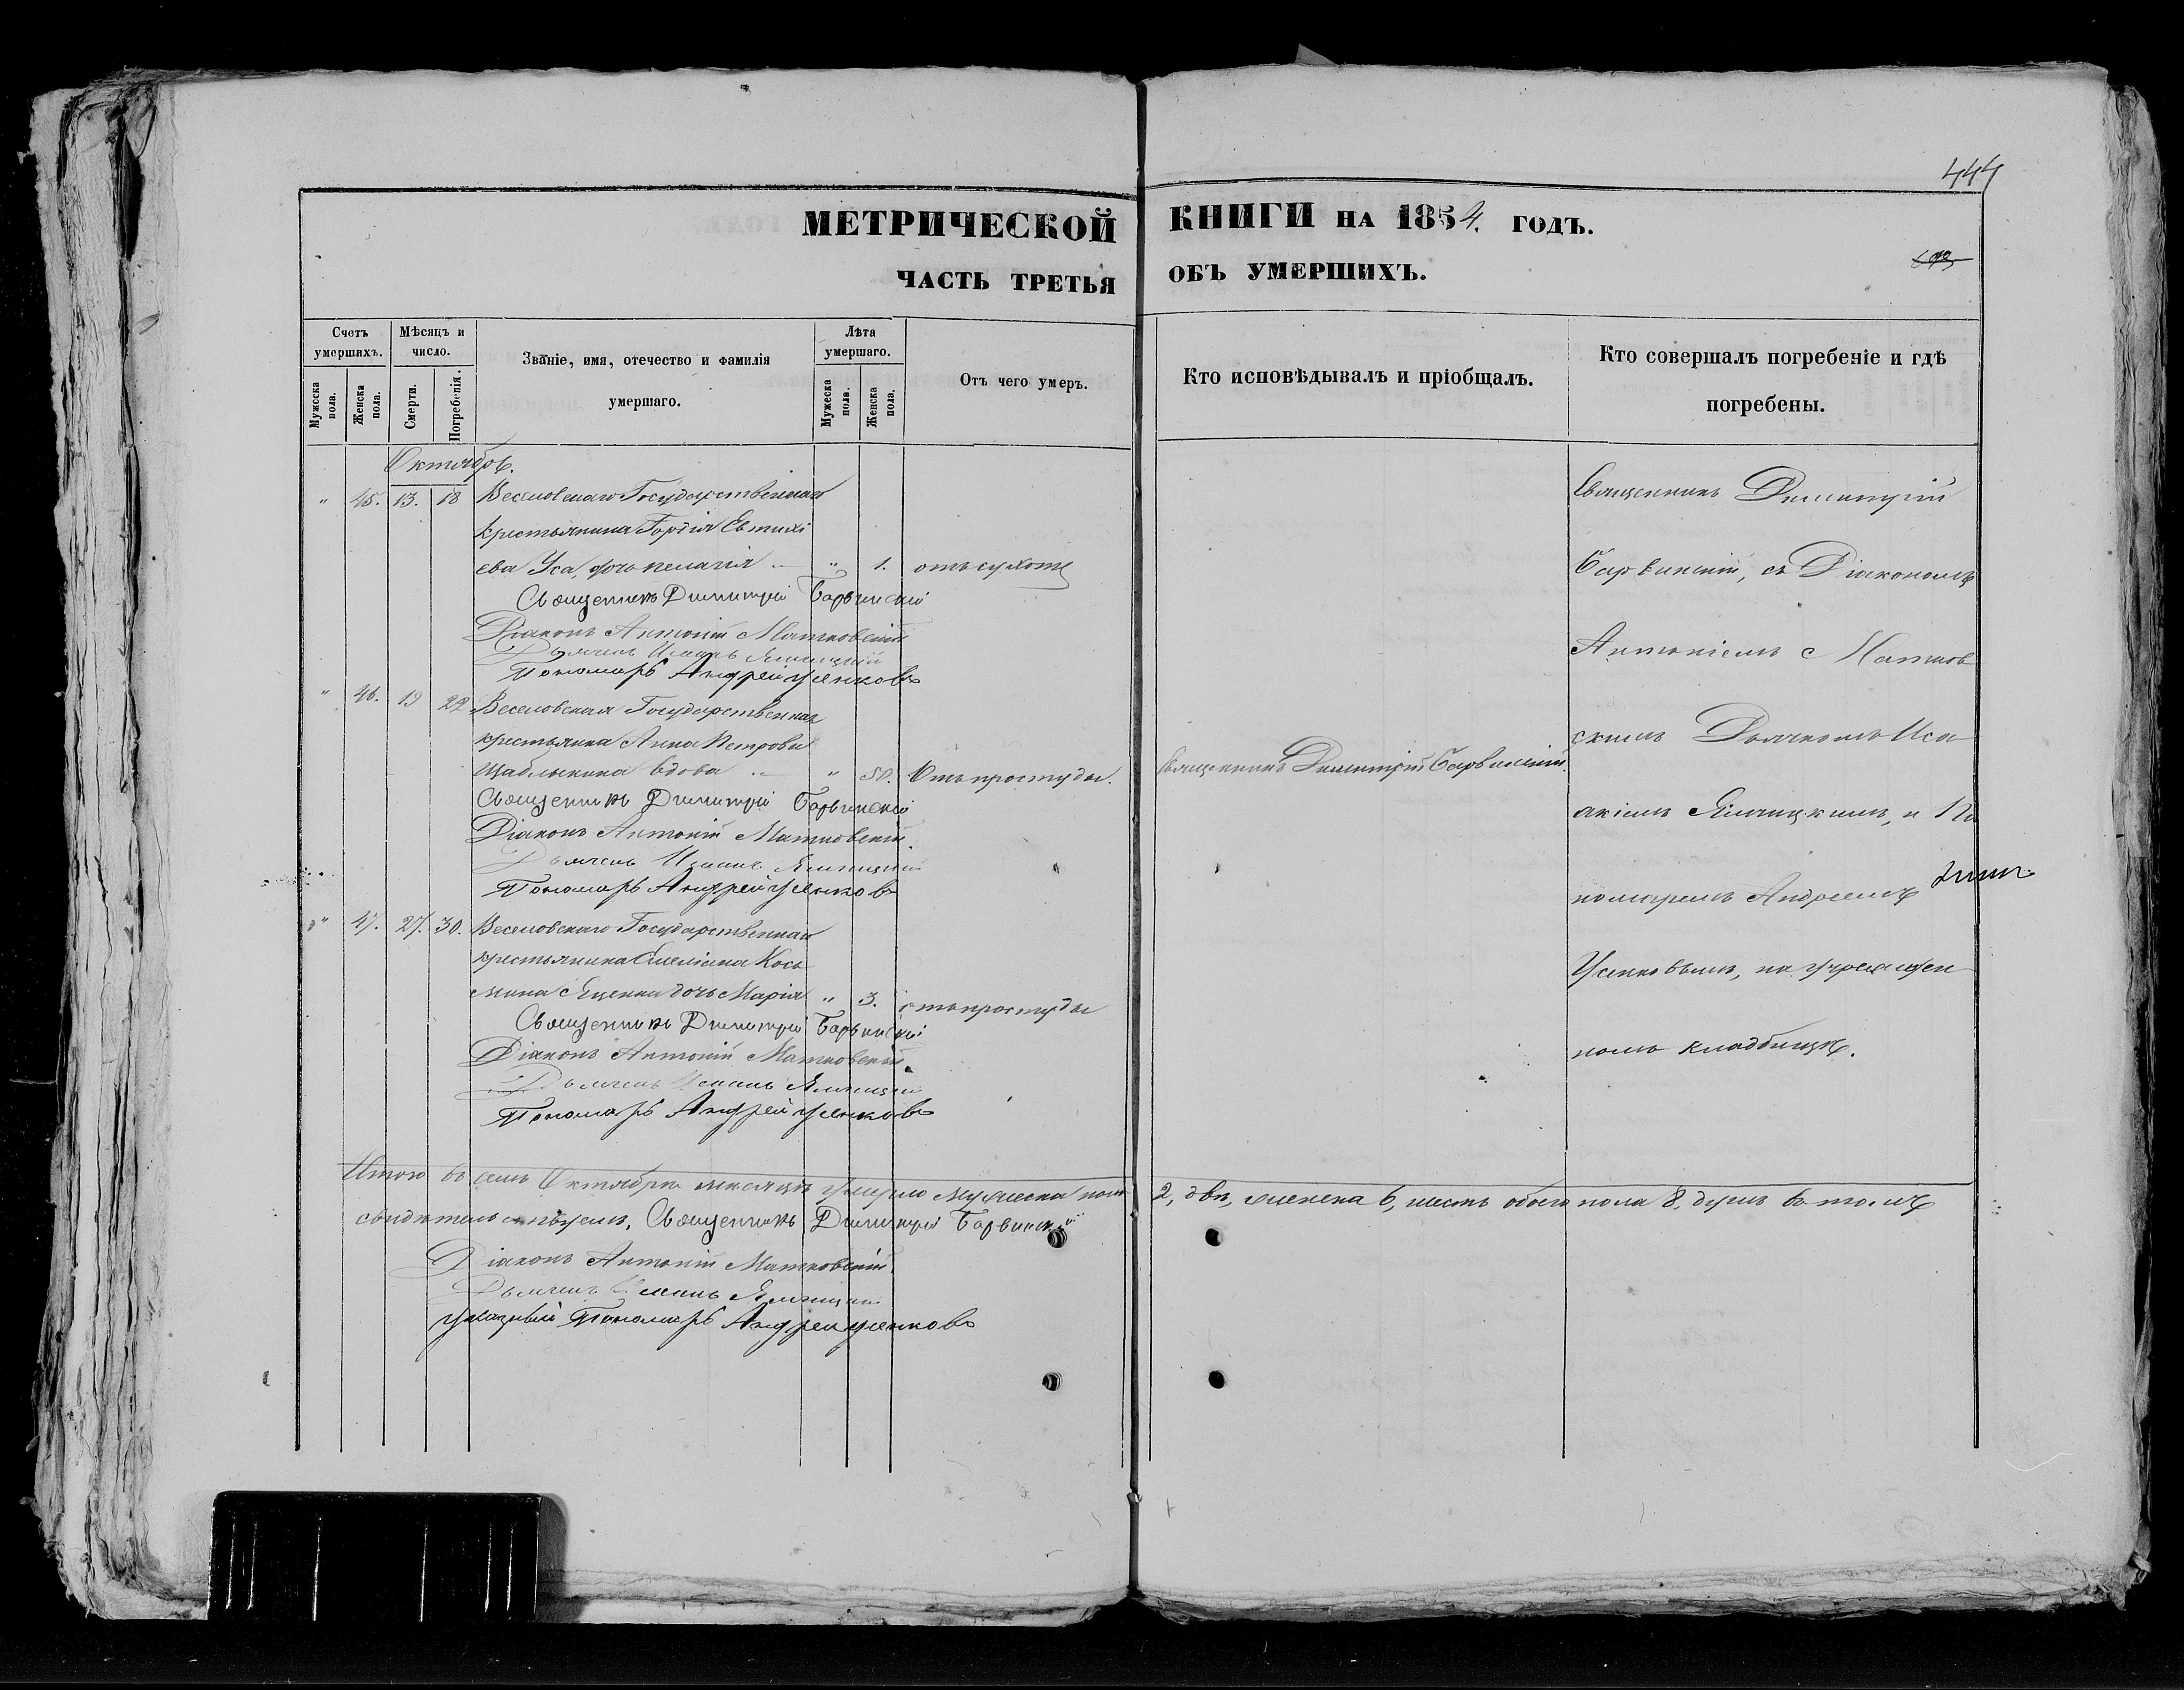 444
МЕТРИЧЕСКОЙ КНИГИ НА 1854. ГОДЪ.
ЧАСТЬ ТРЕТЬЯ ОБЪ УМЕРШИХЪ.
Счетъ умершихъ.
Мужеска пола.
Женска пола.
Мѣсяцъ и число.
Смерти.
Погребенія.
Званіе, имя, отечество и фамилія умершаго.
Лѣта умершаго.
Мужеска пола.
Женска пола.
Отъ чего умеръ.
Кто исповѣдывалъ и пріобщалъ.
Кто совершалъ погребеніе и гдѣ погребены.
Октябрь.
" 45. 13. 18 Веселовскаго Государственнаго
крестьянина Гордія Евтихі
ева Уса, дочь пелагія " 1. отъ сухоты
Священникъ Димитрій Барвинскій
Діаконъ Антоній Матковскій
Дьячекъ Ялницкій
Пономарь Андрей Усенковъ
" 46. 19 22 Веселовская Государственная
крестьянка Анна Петрова
вдова " 50. Отъ простуды. Священникъ Димитрій Барвинскій.
Священникъ Димитрій Барвинскій
Діаконъ Антоній Матковскій.
Дьячекъ Ялницкій
Пономарь Андрей Усенковъ
" 47. 27. 30. Веселовскаго Государственнаго
крестьянина Емеліана Кось
мина Яценка дочь Марія " 3. отъ простуды
Священникъ Димитрій Барвинскій
Діаконъ Антоній Матковскій.
Дьячекъ Ялницкій
Пономарь Андрей Усенковъ
Священникъ Димитрій
Барвинскій, съ Діакономъ
Антоніемъ Матков
скимъ Дьячкомъ Иса
акіемъ Ялницкимъ, и По
номаремъ Андреемъ
Усенковымъ, на
номъ кладбищѣ.
Итого въ семъ Октябрѣ месяцѣ умерло мужеска пола 2, два, женска 6, шесть обоего пола 8. душъ въ томъ
свидѣтельствуемъ, Священникъ Димитрій Барвинскій
Діаконъ Антоній Матковскій.
Дьячекъ Ялницкій
указный Пономарь Андрей Усенковъ